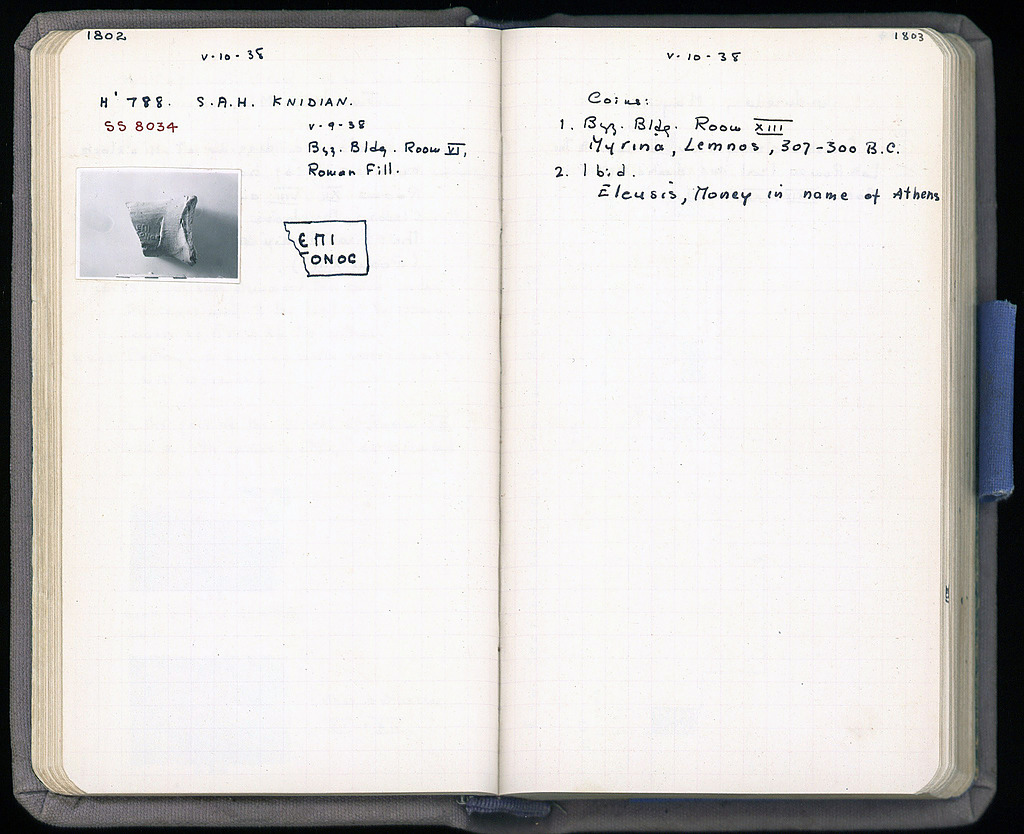 1802
V-10-38
H' 788. S.A.H. KNIDIAN.
SS 8034
V-9-38
Byz. Bldg. Room VI,
Roman Fill.
ЄΠΙ
ΓONOC
1803
V-10-38
Coins:
1. Byz. Bldg. Room XIII
Myrina, Lemnos, 307-300 B.C.
2. Ibid.
Eleusis, Money in name of Athens